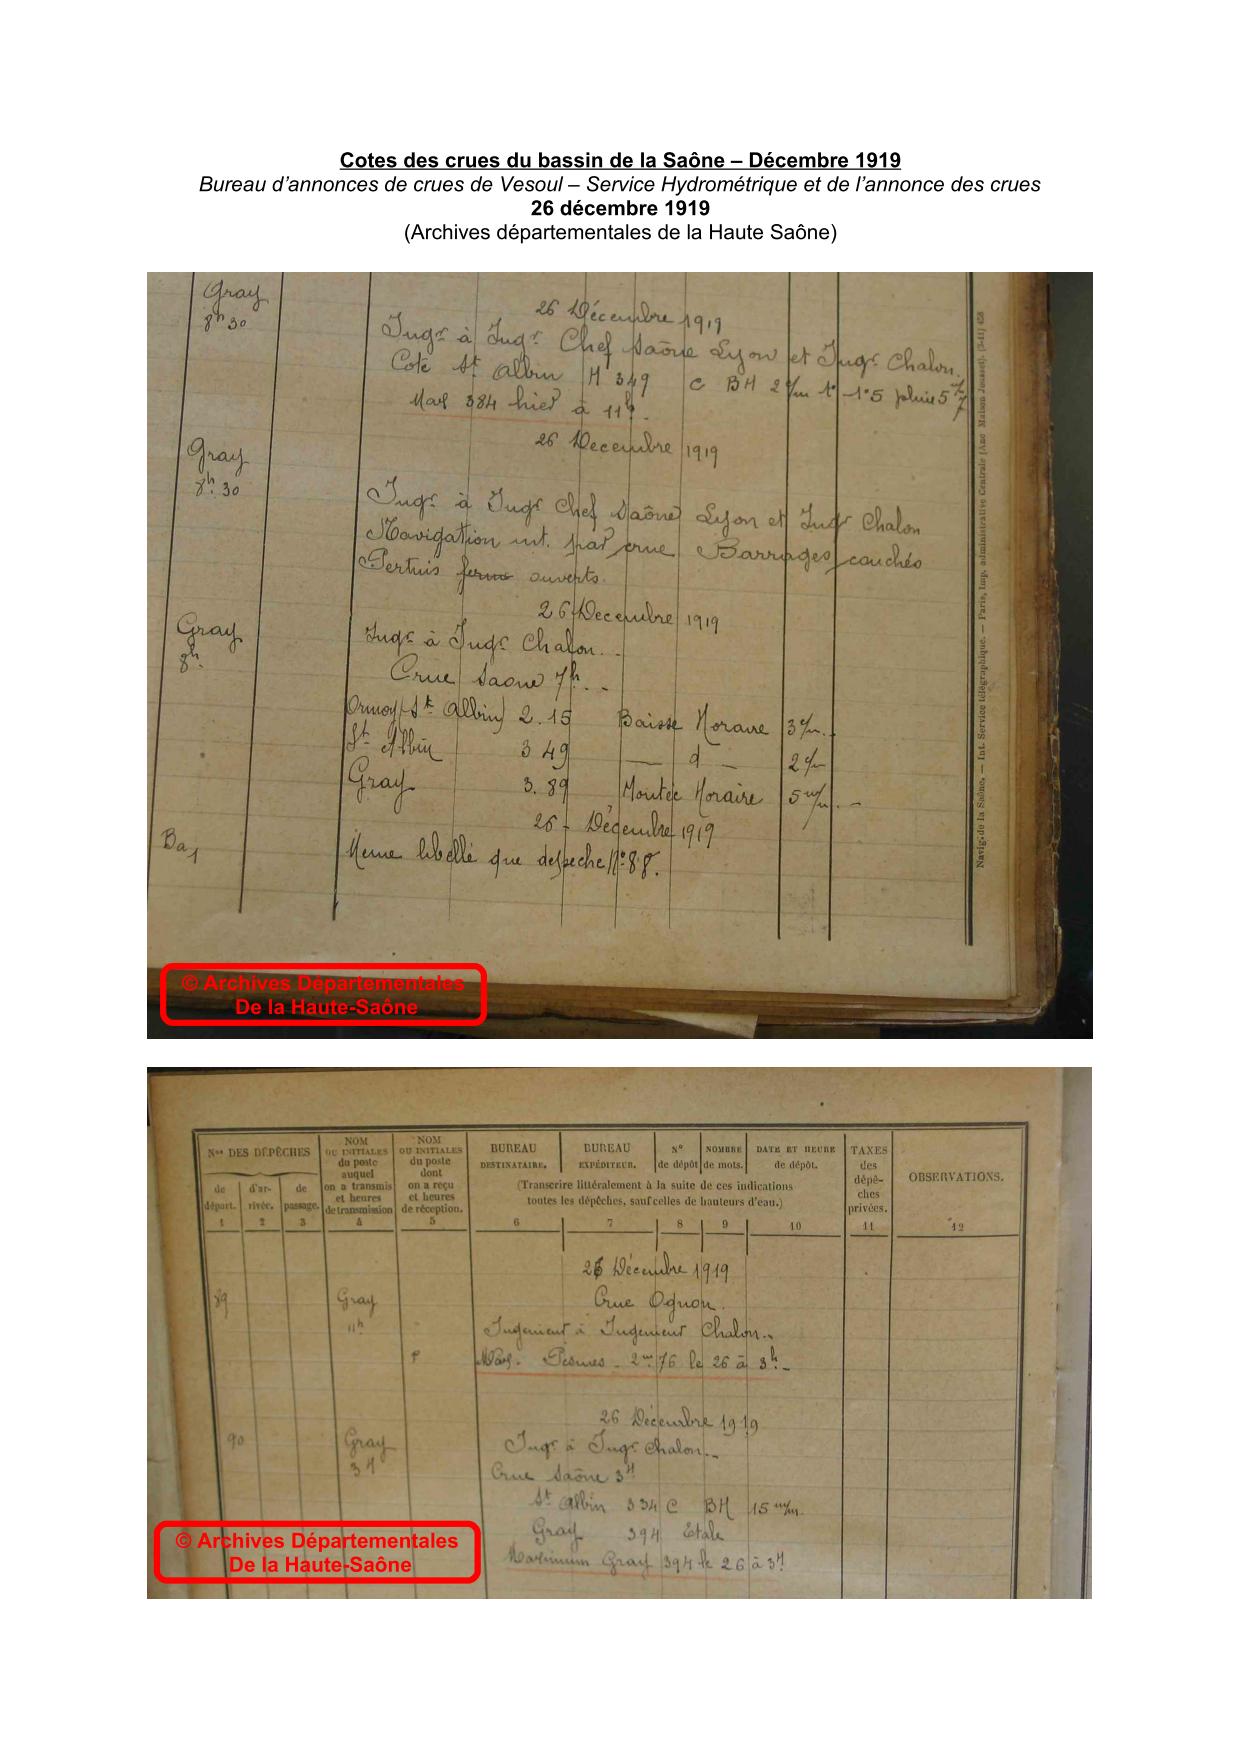 Cotes des crues du bassin de la Saône – Décembre 1919
Bureau d’annonces de crues de Vesoul – Service Hydrométrique et de l’annonce des crues
26 décembre 1919
(Archives départementales de la Haute Saône)
Gray
8h 30
26 Décembre 1919
Ingr à Ingr Chef Saône Lyon et Ingr Chalon.
Cote St Albin H 349 C BH 2 c/m
Max 384 hier à 11h.
26 Decembre 1919
Gray
8h. 30
Ingr à Ingr Chef Saône Lyon et Ingr Chalon
Navigation int. par crue Barrages couchés
Pertuis fermé ouverts.
26 Decembre 1919
Gray
8h.
Ingr à Ingr Chalon..
Crue Saone 7h..
Ormoy (St Albin) 2.15 Baisse Horaire 3 c/m.
St Albin 3 49 — d — 2 c/m
Gray 3.89 Montée Horaire 5 m/m. –
26 - Décembre 1919
Meme libellé que despeche No 88.
Navig. de la Saône. — Int. Service télégraphique. — Paris, Imp. administrative Centrale (Anc Maison Jousset). (3-41) 458
© Archives Départementales
De la Haute-Saône
Nos DES DÉPÊCHES
de départ. 1
d'arrivée. 2
de passage. 3
NOM OU INITIALES du poste auquel on a transmis et heures de transmission 4
NOM OU INITIALES du poste dont on a reçu et heures de réception. 5
BUREAU DESTINATAIRE.
BUREAU EXPÉDITEUR.
N° de dépôt
NOMBRE de mots.
DATE ET HEURE de dépôt.
(Transcrire littéralement à la suite de ces indications
toutes les dépêches, sauf celles de hauteurs d'eau.)
6 7 8 9 10
TAXES des dépêches privées. 11
OBSERVATIONS. 12
26 Décembre 1919
89 Gray Crue Ognon.
11h Ingenieur à Ingenieur Chalon..
Max. Pesmes - 2m 76 le 26 à 3h. -
26 Décembre 1919
90 Gray Ingr à Ingr Chalon..
3H Crue Saône 3H
St Albin 334 C BH 15 m/m.
Gray 394 Etale
Maximum Gray 394 le 26 à 3H
© Archives Départementales
De la Haute-Saône